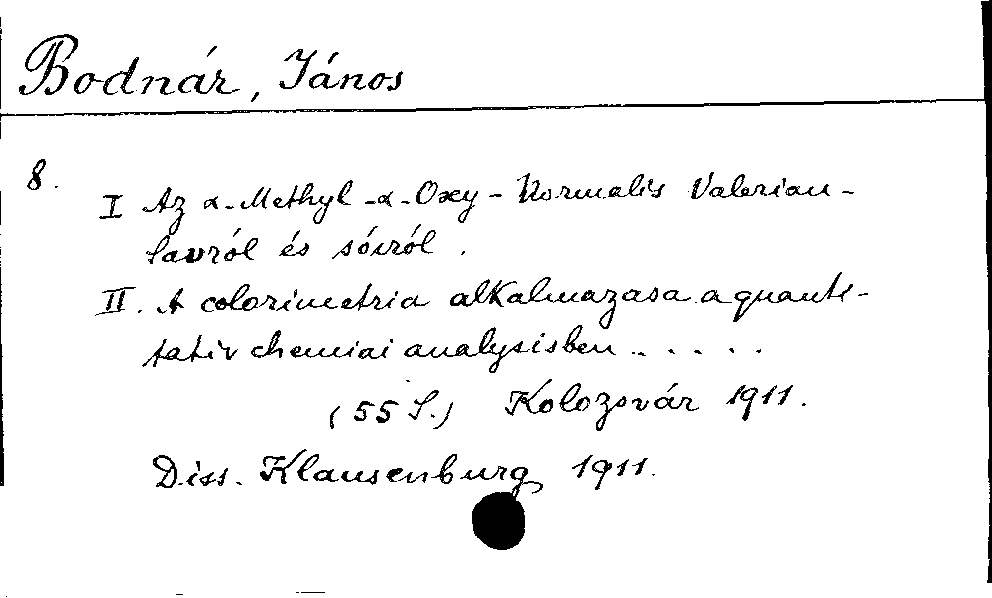 Bodnár, János
8.
I Az α-Methyl-α-Oxy-Normalis Valerian-
savról és sóiról.
II. A colorimetria alkalmazasa a quanti-
tativ chemiai analysisben . . . . .
(55 S.) Kolozsvár 1911.
Diss. Klausenburg 1911.